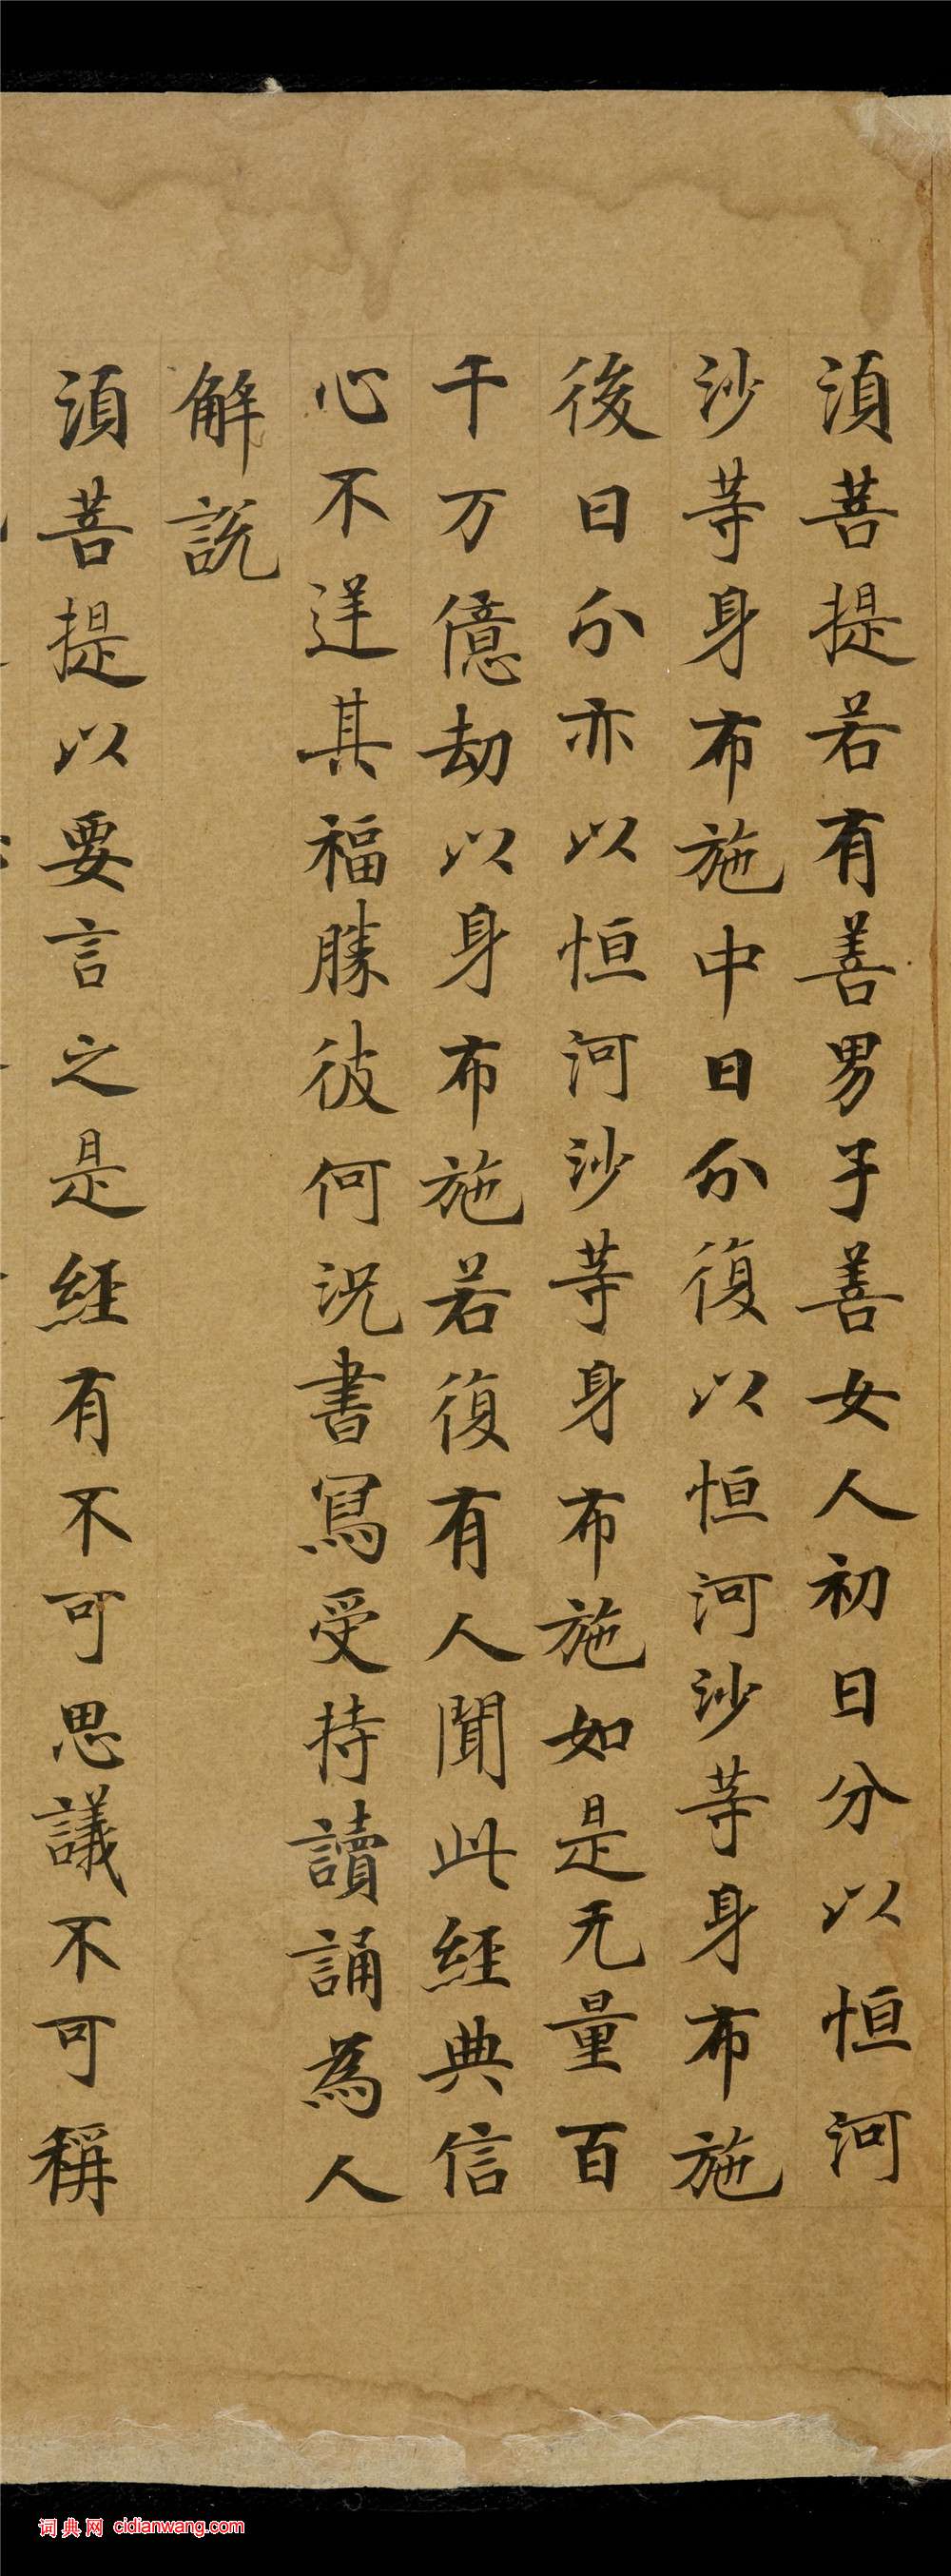 湏菩提若有善男子善女人初日分以恒河
沙等身布施中日分復以恒河沙等身布施
後日分亦以恒河沙等身布施如是无量百
千万億劫以身布施若復有人聞此經典信
心不逆其福勝彼何況書寫受持讀誦為人
解說
湏菩提以要言之是經有不可思議不可稱
词典网 cidianwang.com